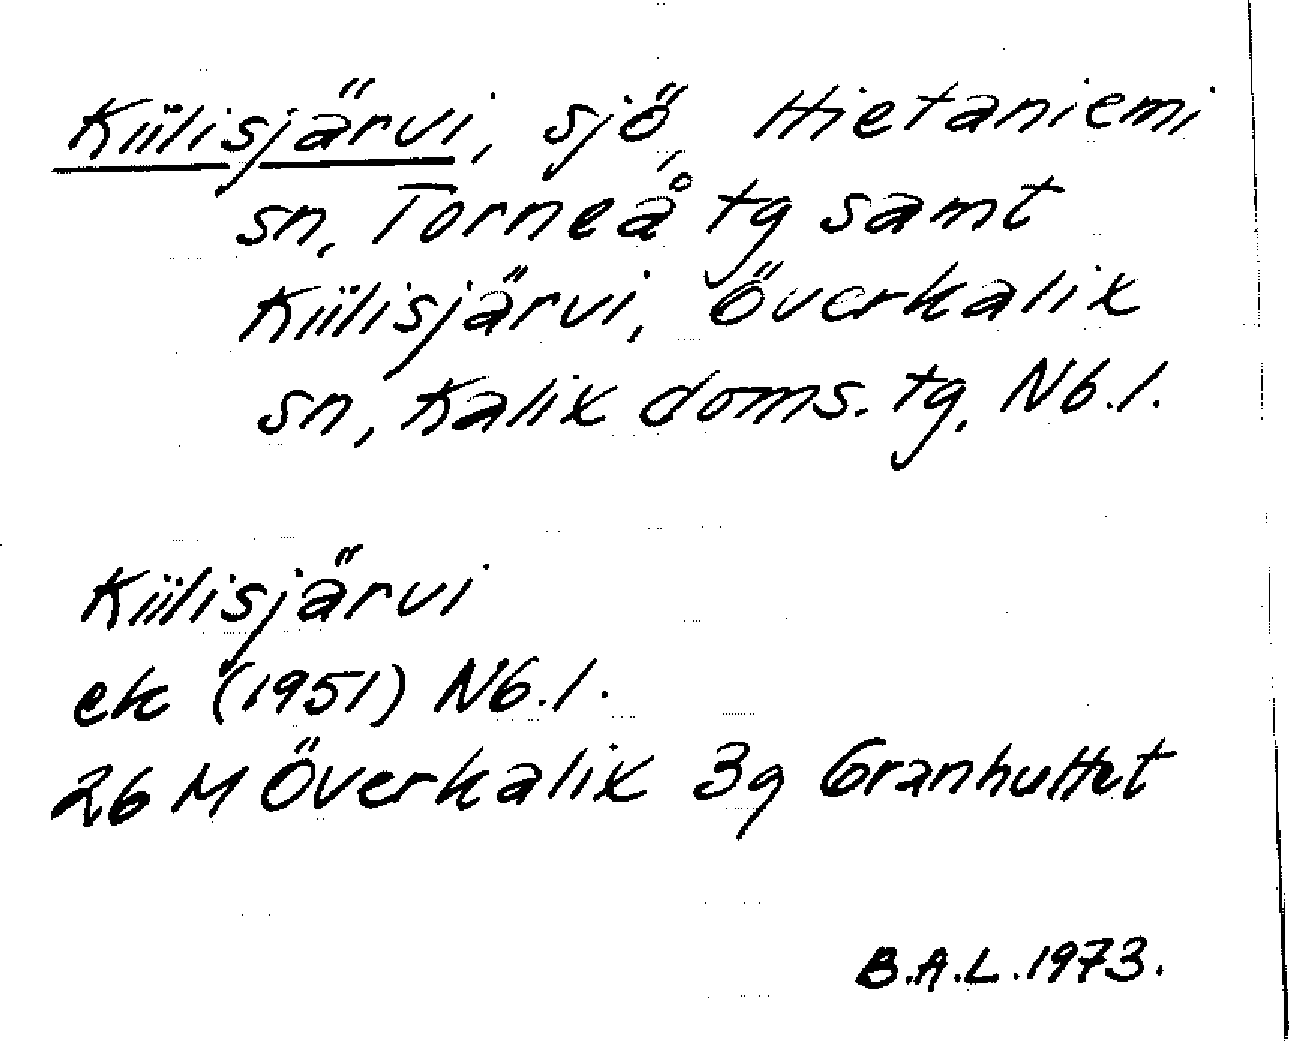 Kiilisjärvi, sjö, Hietaniemi
sn, Torneå tg samt
Kiilisjärvi, Överkalix
sn, Kalix doms. tg, Nb.l.
Kiilisjärvi
ek (1951) Nb.l.
26 M Överkalix 3g Granhuttet
B.A.L. 1973.